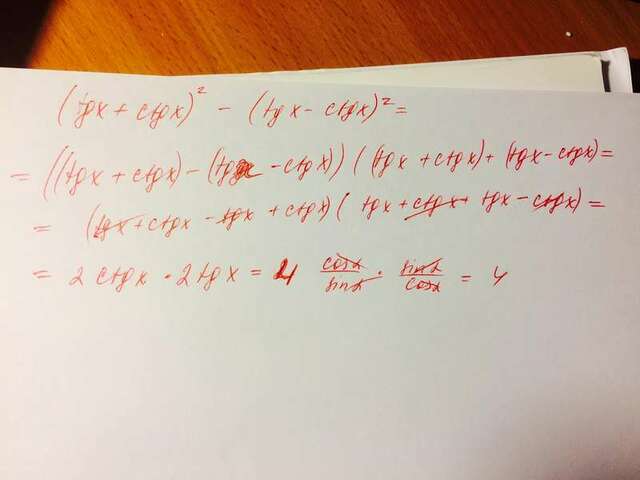 (tgx + ctgx)² - (tgx - ctgx)² =
= ((tgx + ctgx) - (tgx - ctgx)) (tgx + ctgx) + (tgx - ctgx) =
= (tgx + ctgx - tgx + ctgx) (tgx + ctgx + tgx - ctgx) =
= 2 ctgx · 2 tgx = 4 cosα/sinα · sinα/cosα = 4